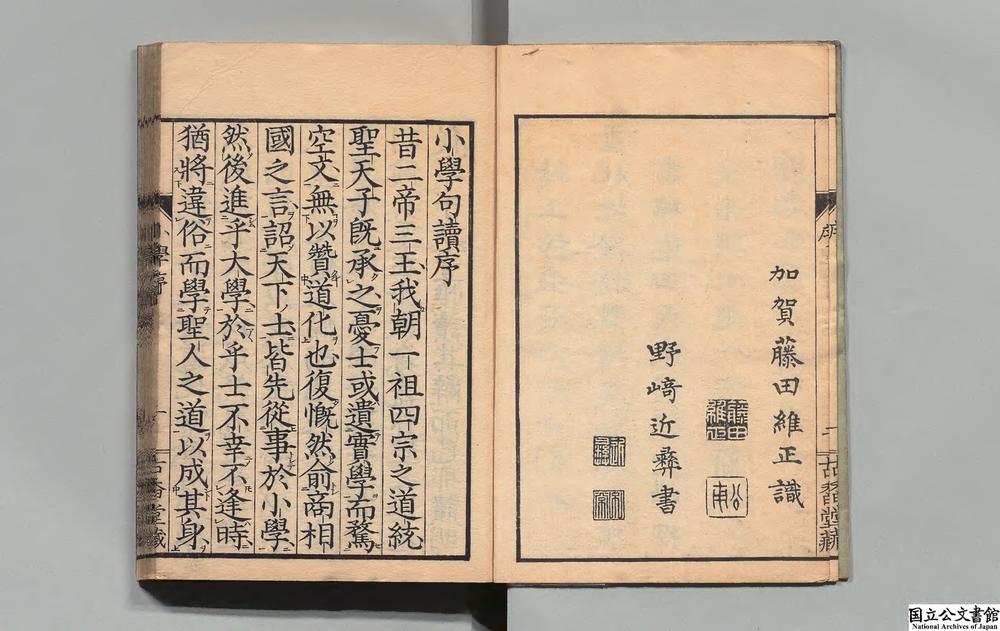 加賀藤田維正識
藤田維正
野﨑近彝書
小學句讀序
昔二帝三王我朝一祖四宗之道統
聖天子既承之憂士或遺實學而騖
空文無以贊道化也復慨然俞商相
國之言詔天下士皆先從事於小學
然後進乎大學於乎士不幸不逢時
猶將違俗而學聖人之道以成其身
小學序
一
古香堂藏
国立公文書館
National Archives of Japan